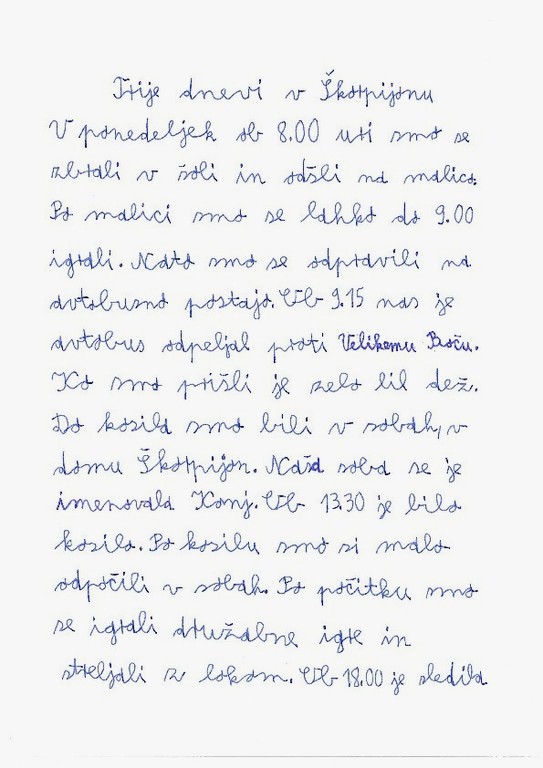 Trije dnevi v Škorpijonu
V ponedeljek ob 8.00 uri smo se
zbrali v šoli in odšli na malico.
Po malici smo se lahko do 9.00
igrali. Nato smo se odpravili na
avtobusno postajo. Ob 9.15 nas je
avtobus odpeljal proti Velikemu Boču.
Ko smo prišli je zelo lil dež.
Do kosila smo bili v sobah, v
domu Škorpijon. Naša soba se je
imenovala Konj. Ob 13.30 je bilo
kosilo. Po kosilu smo si malo
odpočili v sobah. Po počitku smo
se igrali družabne igre in
streljali z lokom. Ob 18.00 je sledila